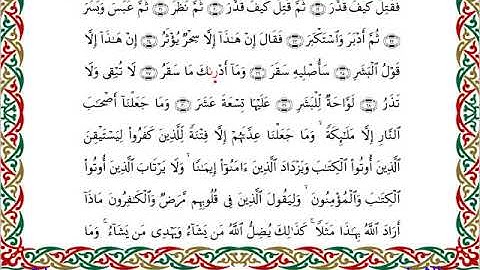 فَقُتِلَ كَيْفَ قَدَّرَ ۝١٩ ثُمَّ قُتِلَ كَيْفَ قَدَّرَ ۝٢٠ ثُمَّ نَظَرَ ۝٢١ ثُمَّ عَبَسَ وَبَسَرَ
۝٢٢ ثُمَّ أَدْبَرَ وَٱسْتَكْبَرَ ۝٢٣ فَقَالَ إِنْ هَـٰذَآ إِلَّا سِحْرٌ يُؤْثَرُ ۝٢٤ إِنْ هَـٰذَآ إِلَّا
قَوْلُ ٱلْبَشَرِ ۝٢٥ سَأُصْلِيهِ سَقَرَ ۝٢٦ وَمَآ أَدْرَىٰكَ مَا سَقَرُ ۝٢٧ لَا تُبْقِى وَلَا
تَذَرُ ۝٢٨ لَوَّاحَةٌ لِّلْبَشَرِ ۝٢٩ عَلَيْهَا تِسْعَةَ عَشَرَ ۝٣٠ وَمَا جَعَلْنَآ أَصْحَـٰبَ
ٱلنَّارِ إِلَّا مَلَـٰٓئِكَةً ۙ وَمَا جَعَلْنَا عِدَّتَهُمْ إِلَّا فِتْنَةً لِّلَّذِينَ كَفَرُوا۟ لِيَسْتَيْقِنَ
ٱلَّذِينَ أُوتُوا۟ ٱلْكِتَـٰبَ وَيَزْدَادَ ٱلَّذِينَ ءَامَنُوٓا۟ إِيمَـٰنًا ۙ وَلَا يَرْتَابَ ٱلَّذِينَ أُوتُوا۟
ٱلْكِتَـٰبَ وَٱلْمُؤْمِنُونَ ۙ وَلِيَقُولَ ٱلَّذِينَ فِى قُلُوبِهِم مَّرَضٌ وَٱلْكَـٰفِرُونَ مَاذَآ
أَرَادَ ٱللَّهُ بِهَـٰذَا مَثَلًا ۚ كَذَٰلِكَ يُضِلُّ ٱللَّهُ مَن يَشَآءُ وَيَهْدِى مَن يَشَآءُ ۚ وَمَا